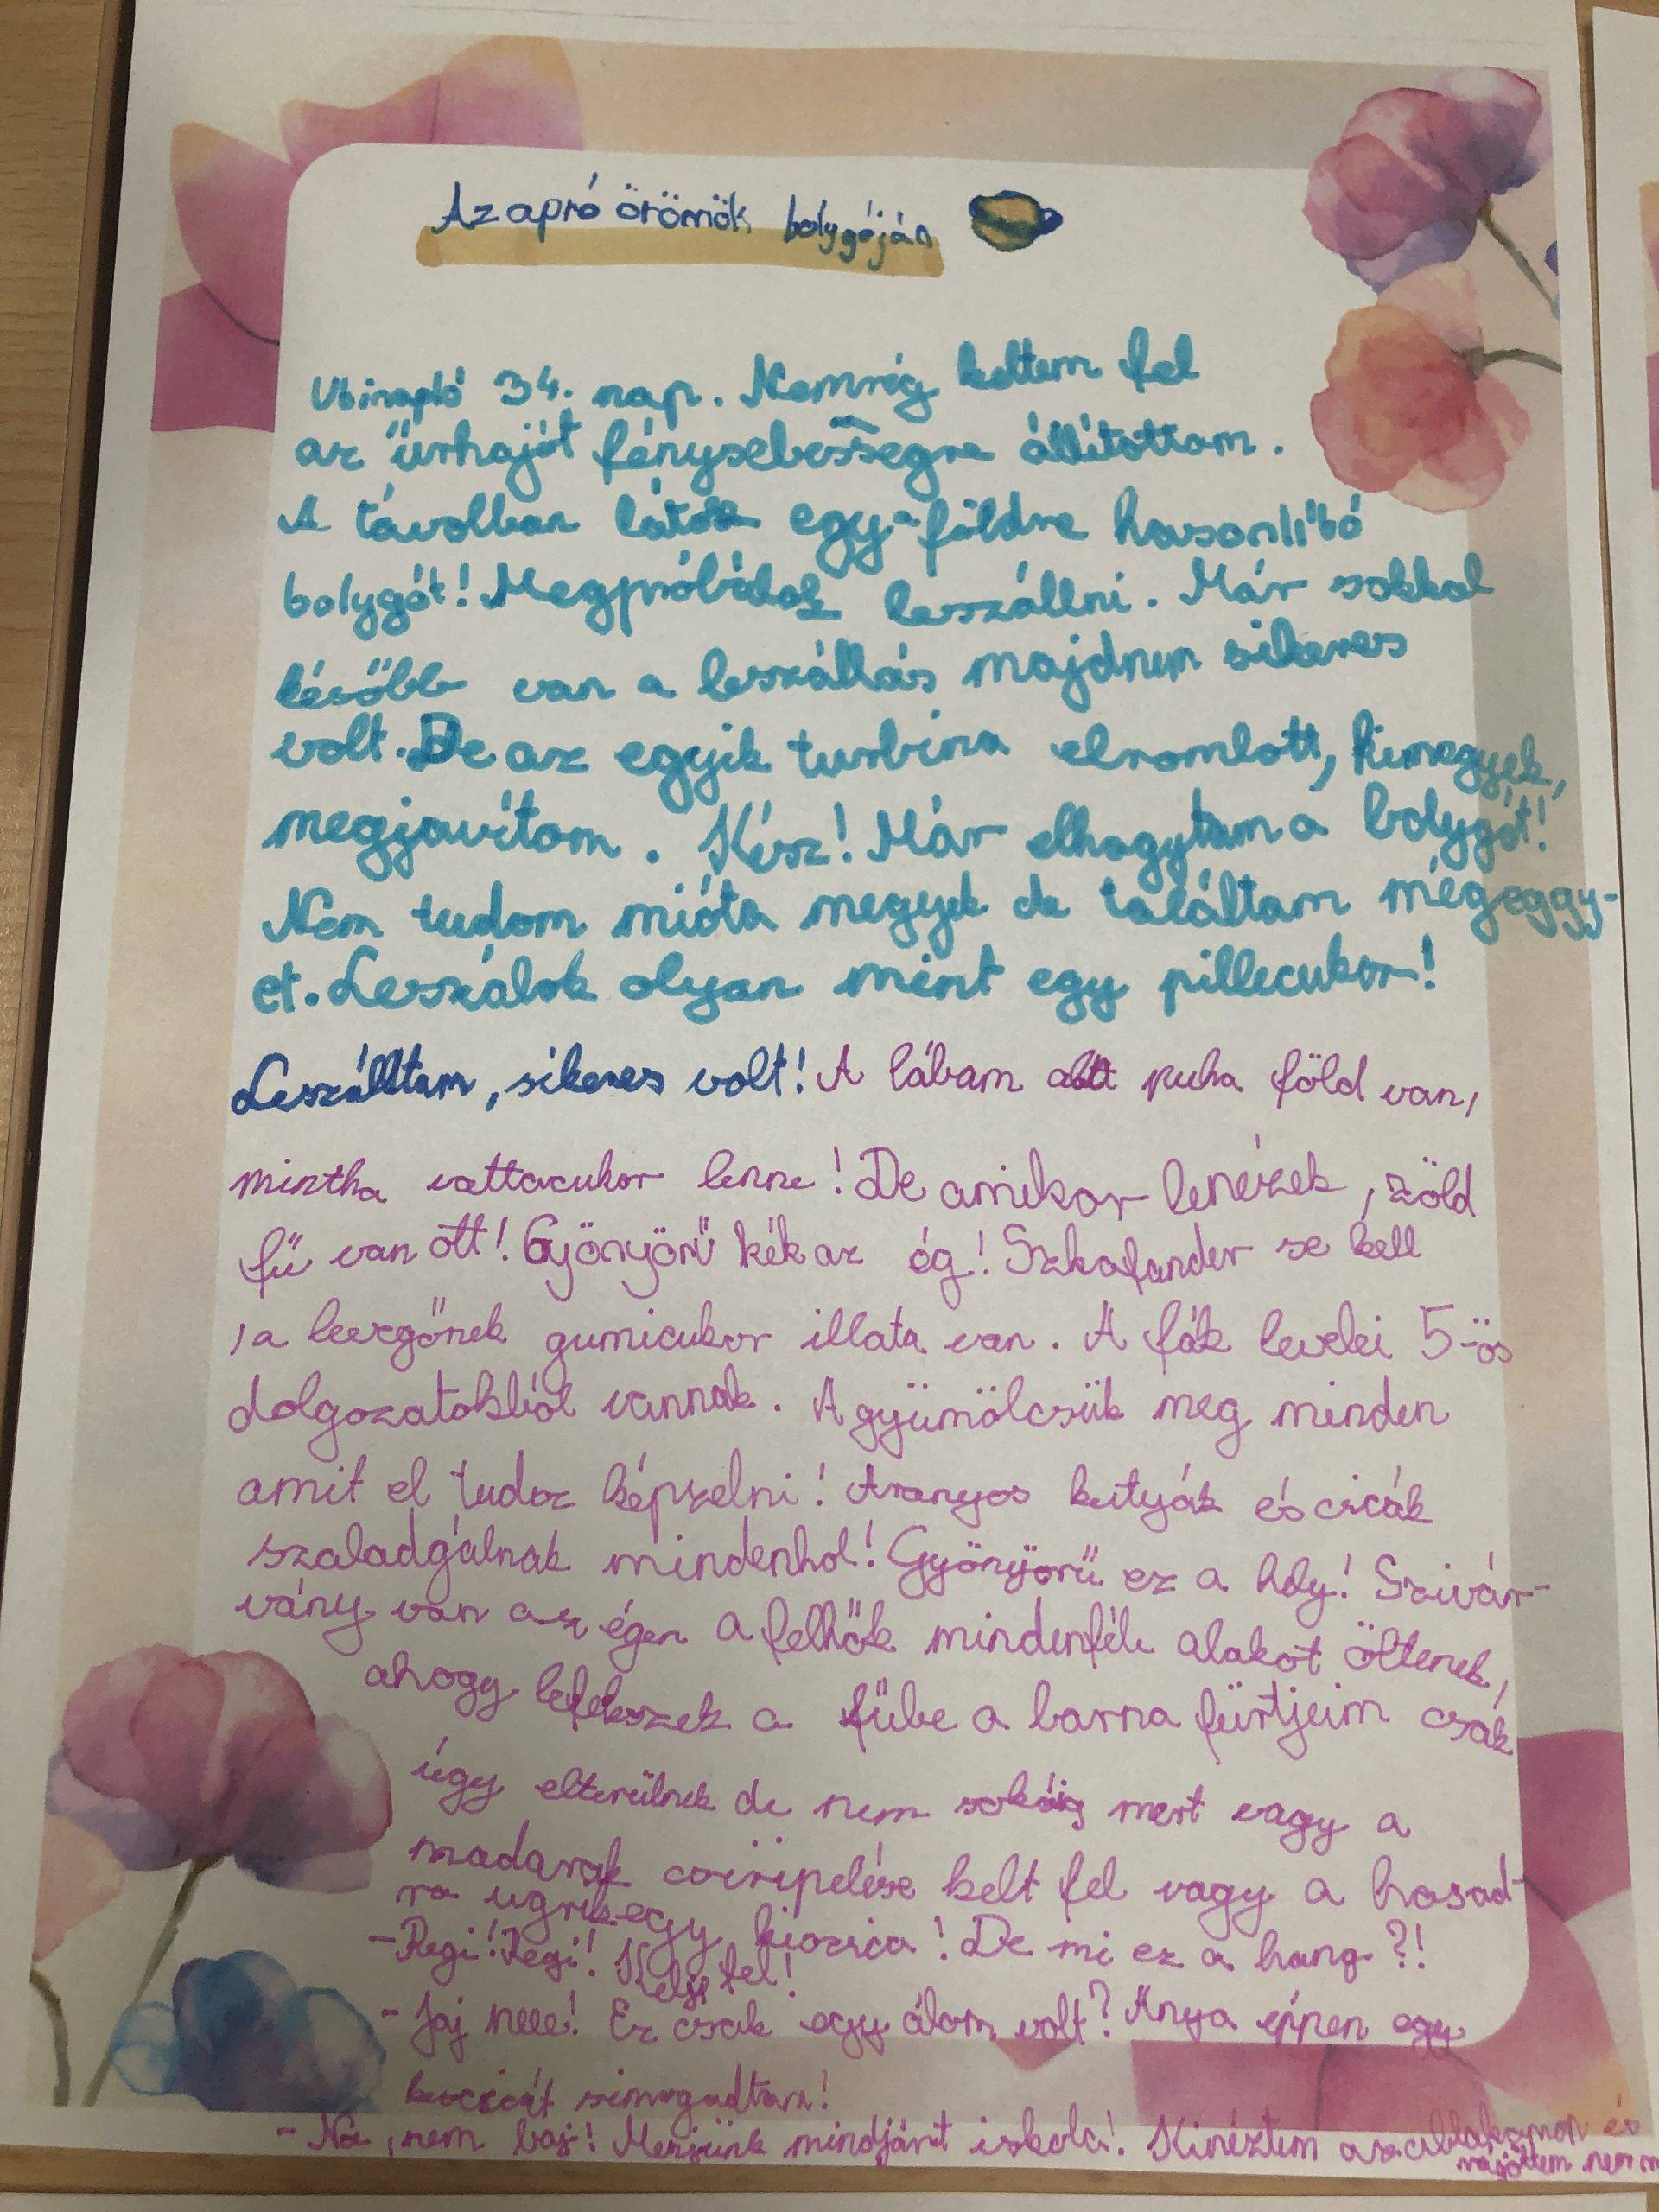 Az apró örömök bolygóján
Utinapló 34. nap. Nemrég keltem fel
az űrhajót fénysebességre állítottam.
A távolban látok egy földre hasonlító
bolygót! Megpróbálok leszállni. Már sokkal
később van a leszállás majdnem sikeres
volt. De az egyik turbina elromlott, kimegyek,
megjavítom. Kész! Már elhagytam a bolygót!
Nem tudom mióta megyek de találtam mégeggy-
et. Leszálok olyan mint egy pillecukor!
Leszálltam, sikeres volt! A lábam alatt puha föld van,
mintha vattacukor lenne! De amikor lenézek, zöld
fű van ott! Gyönyörű kék az ég! Szkafander se kell
, a levegőnek gumicukor illata van. A fák levelei 5-ös
dolgozatokból vannak. A gyümölcsük meg minden
amit el tudsz képzelni! Aranyos kutyák és cicák
szaladgálnak mindenhol! Gyönyörű ez a hely! Szivár-
vány van az égen a felhők mindenféle alakot öltenek,
ahogy lefekszek a fűbe a barna fürtjeim csak
úgy elterülnek de nem sokáig mert vagy a
madarak csiripelése kelt fel vagy a hasad-
ra ugrik egy kiscica! De mi ez a hang?!
- Regi! Regi! Kelj fel!
- Jaj neee! Ez csak egy álom volt? Anya éppen egy
kiscicát simogadtam!
- Na, nem baj! Menjünk mindjárt iskola! Kinéztem az ablakomon és
rájöttem nem m